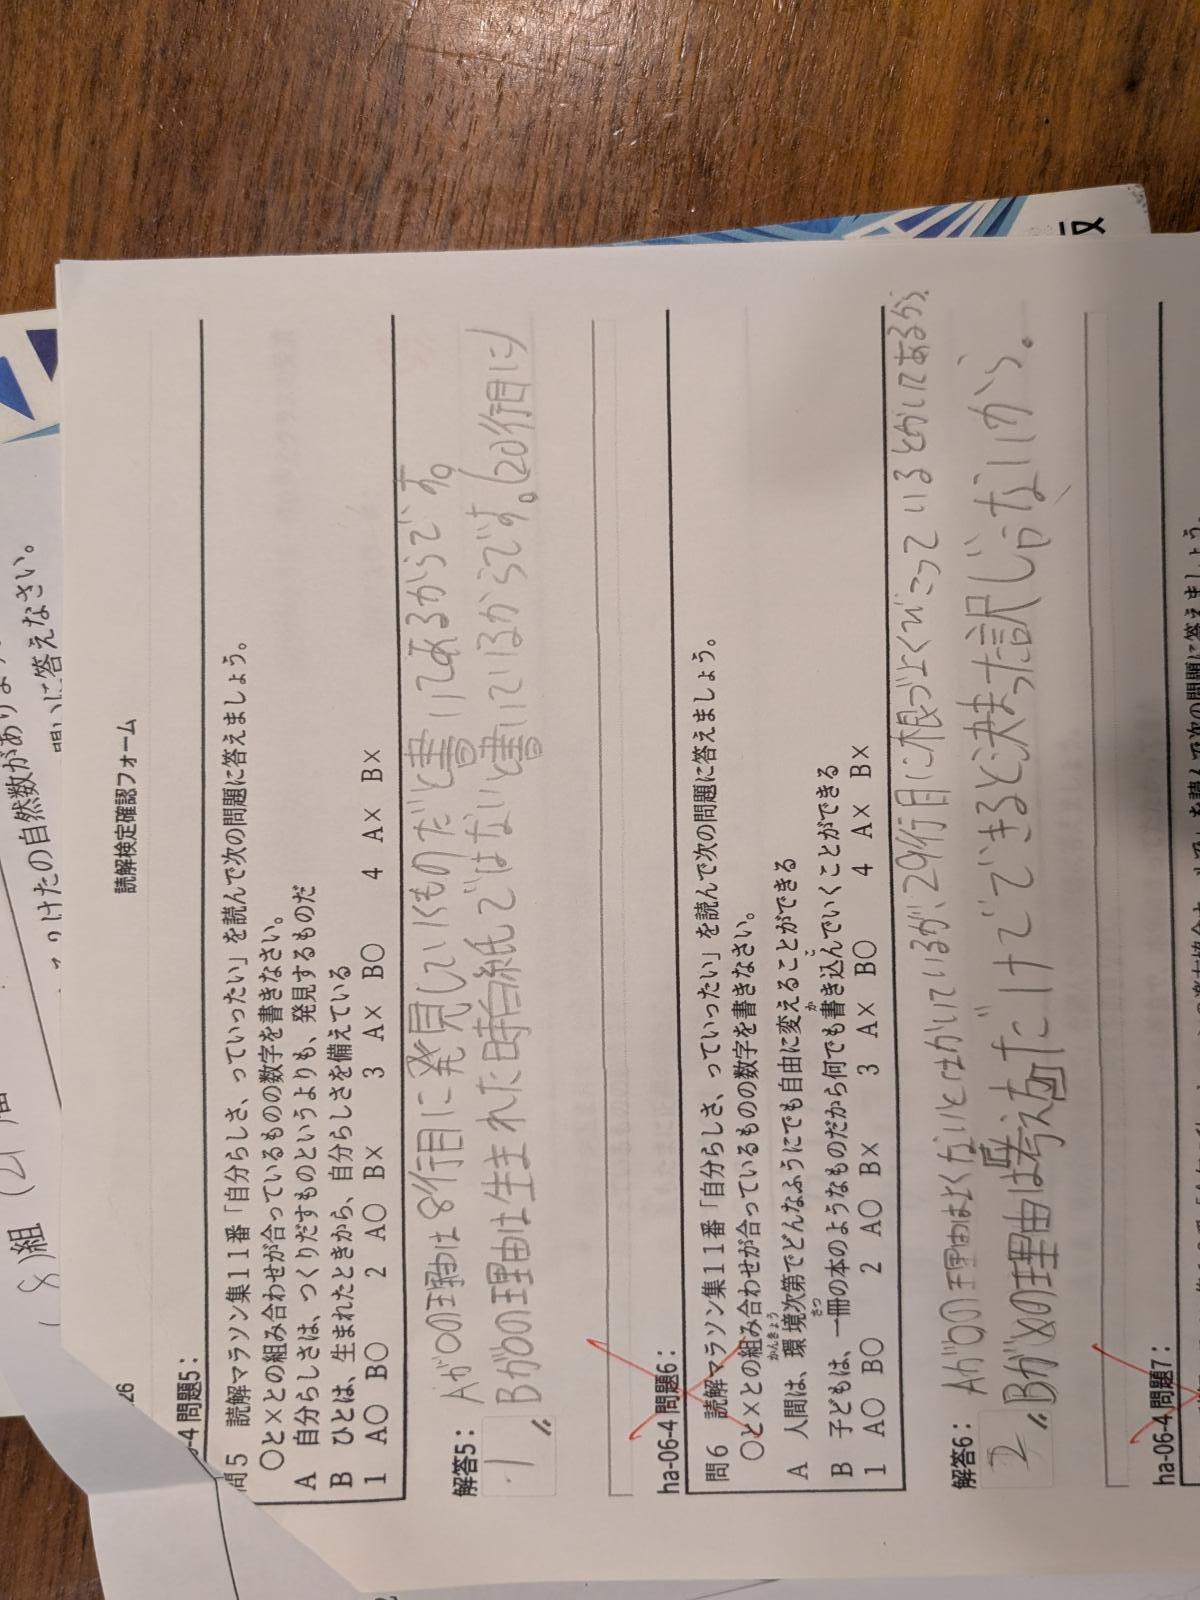 つけたの自然数があります
問いに答えなさい。
8)組(21
26
読解検定確認フォーム
-4 問題5:
問5 読解マラソン集11番「自分らしさ、っていったい」を読んで次の問題に答えましょう。
〇と×との組み合わせが合っているものの数字を書きなさい。
A 自分らしさは、つくりだすものというよりも、発見するものだ
B ひとは、生まれたときから、自分らしさを備えている
1 A〇 B〇 2 A〇 B× 3 A× B〇 4 A× B×
解答5:
1
Aが○の理由は8行目に発見していくものだと書いてあるからです。
Bが○の理由は生まれた時白紙ではないと書いているからです。(20行目に)
ha-06-4 問題6:
問6 読解マラソン集11番「自分らしさ、っていったい」を読んで次の問題に答えましょう。
〇と×との組み合わせが合っているものの数字を書きなさい。
A 人間は、環境次第でどんなふうにでも自由に変えることができる
かんきょう
か
B 子どもは、一冊の本のようなものだから何でも書き込んでいくことができる
さつ
こ
1 A〇 B〇 2 A〇 B× 3 A× B〇 4 A× B×
解答6:
2
Aが○の理由はよくないとはかいているが、29行目に根づよくのこっているとかいてあるから。
Bが×の理由は考えただけでできると決まった訳じゃないから。
ha-06-4 問題7: